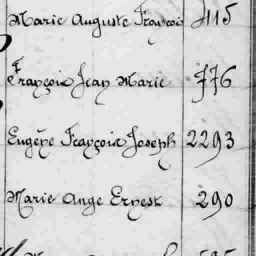 Marie Auguste François 4115
François Jean Marie 776
Eugène François Joseph 2293
Marie Ange Ernest 290